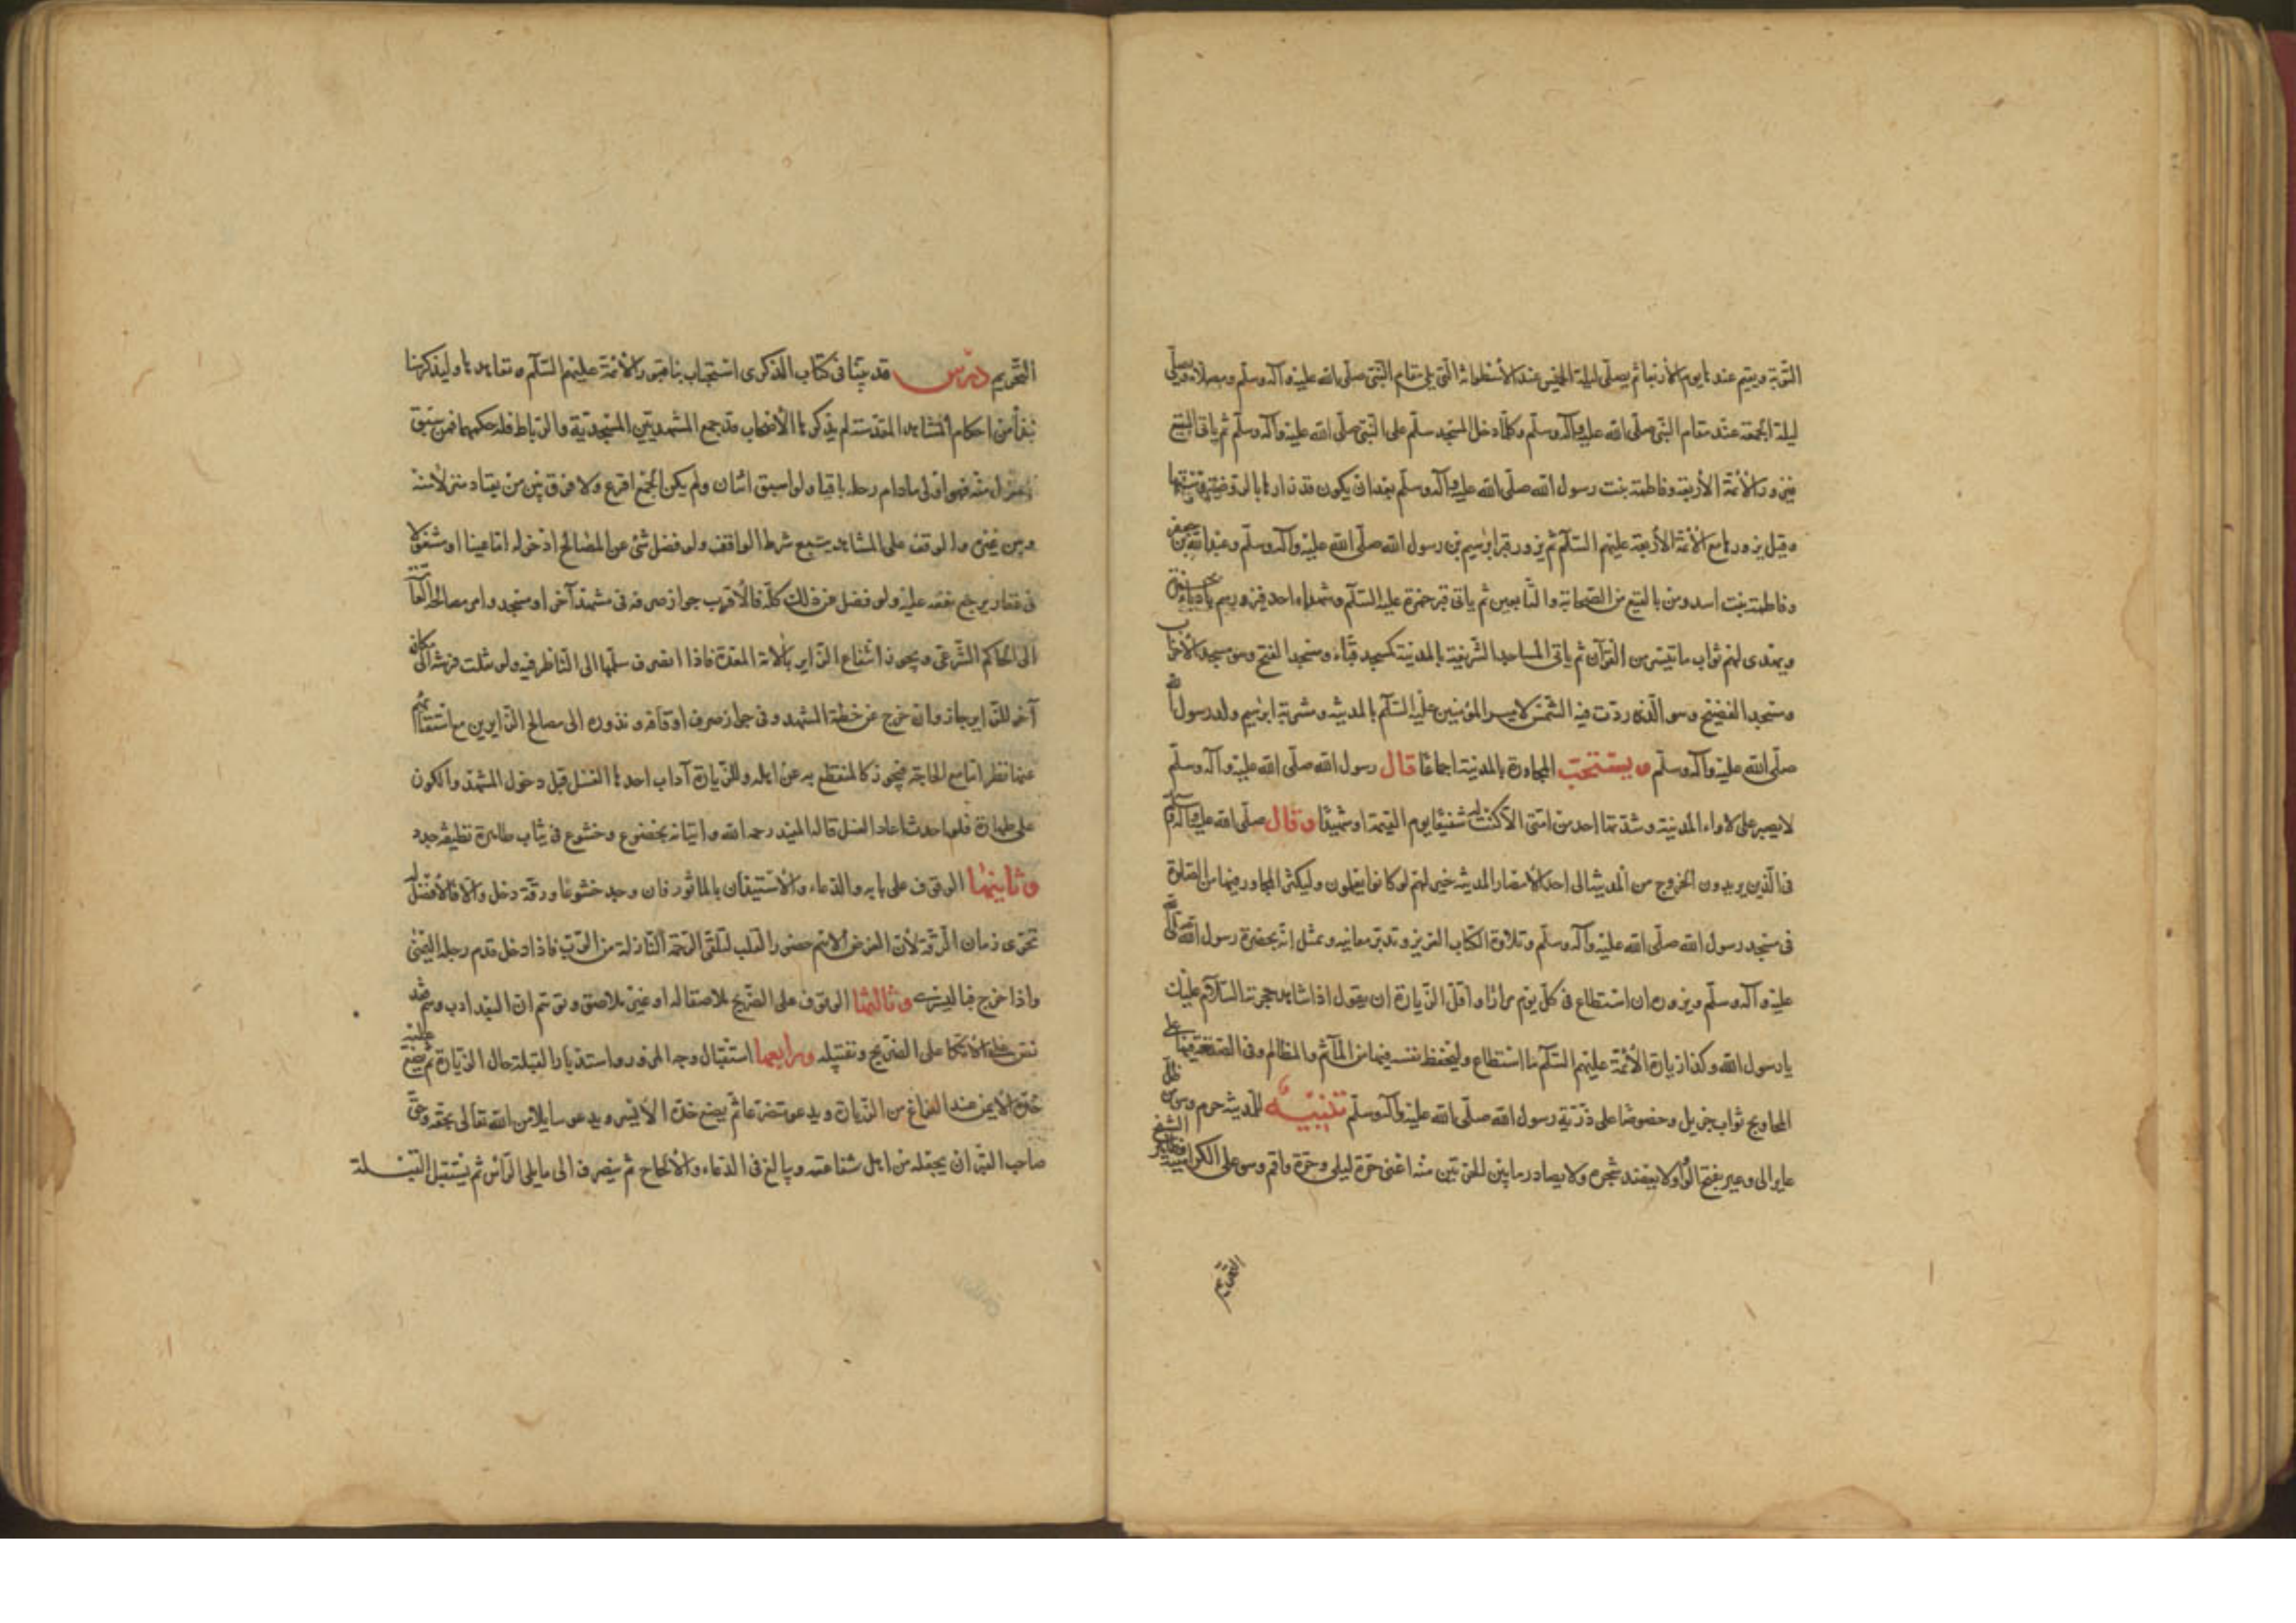 التوبة ويقيم عندها يوم الأربعاء ثم يصلي ليلة الخميس عند الأسطوانة التي يلي مقام النبي صلى الله عليه وآله وسلم ومصلاه ويصلي
ليلة الجمعة عند مقام النبي صلى الله عليه وآله وسلم وكلما دخل المسجد سلم على النبي صلى الله عليه وآله وسلم ثم يأتي البقيع
فيزور الأئمة الأربعة وفاطمة بنت رسول الله صلى الله عليه وآله وسلم بعد ان يكون قد زارها بالروضة وبيتها
وقيل يزورها مع الأئمة الأربعة عليهم السلام ثم يزور قبر ابرهيم بن رسول الله صلى الله عليه وآله وسلم وعبد الله بن جعفر
وفاطمة بنت اسد ومن بالبقيع من الصحابة والتابعين ثم يأتي قبر حمزة عليه السلام وشهداء احد فيزورهم
ويهدى لهم ثواب ما تيسر من القرآن ثم يأتي المساجد الشريفة بالمدينة كمسجد قباء ومسجد الفتح وهو مسجد الأحزاب
ومسجد الفضيخ وهو الذي ردت فيه الشمس لامير المؤمنين عليه السلام بالمدينة ومشربة ابرهيم ولد رسول الله
صلى الله عليه وآله وسلم ويستحب المجاورة بالمدينة اجماعا قال رسول الله صلى الله عليه وآله وسلم
لا يصبر على لاواء المدينة وشدتها احد من امتي الا كنت له شفيعا يوم القيمة او شهيدا وقال صلى الله عليه وآله وسلم
في الذين يريدون الخروج من المدينة الى احد الامصار المدينة خير لهم لو كانوا يعلمون وليكثر المجاور فيها من الصلوة
في مسجد رسول الله صلى الله عليه وآله وسلم وتلاوة الكتاب العزيز وتدبر معانيه وتمثل انه بحضرة رسول الله صلى الله
عليه وآله وسلم ويزوره ان استطاع في كل يوم مرارا واقل الزيارة ان يقول اذا شاهد حجرته السلام عليك
يا رسول الله وكذا زيارة الأئمة عليهم السلام ما استطاع وليحفظ نفسه فيها من المآثم والمظالم وفي الصدقة فيها على
المحاويج ثواب جزيل وخصوصا على ذرية رسول الله صلى الله عليه وآله وسلم تنبيه للمدينة حرم وهو من ظل
عاير الى وعير بفتح الواو لا يعضد شجره ولا يصاد ما بين الحرتين منه اعني حرة ليلى وحرة واقم وهو على الكراهية
التحريم
التحريم درس قد بينا في كتاب الذكرى استحباب بنا قبور الأئمة عليهم السلام وتعاهدها ولنذكر هنا
نبذا من احكام المشاهد المقدسة لم يذكرها الأصحاب قد جمع المشهد بين المسجدية والرباط فله حكمهما فمن سبق
الى منزل منه فهو اولى ما دام رحله باقيا ولو سبق اثنان ولم يكن الجمع اقرع ولا فرق بين من يعتاد منزلا منه
وبين غيره والوقف على المشاهد يتبع شرط الواقف ولو فضل شئ عن المصالح ادخر له اما عينا او مشغولا
في عقار يرجع نفعه عليه ولو فضل عن ذلك كله فالأقرب جواز صرفه في مشهد آخر او مسجد وامر مصالحه العامة
الى الحاكم الشرعي ويجوز انتفاع الزاير بالآلة المعدة فاذا انصرف سلمها الى الناظر فيه ولو نقلت فرشه الى مكان
آخر للزاير جاز وان خرج عن خطة المشهد وفي جواز صرف اوقافه ونذوره الى مصالح الزايرين مع استغنائهم
عنها نظر اما مع الحاجة فيجوز كالمنقطع به عن اهله وللزيارة آداب احدها الغسل قبل دخول المشهد والكون
على طهارة فلو احدث اعاد الغسل قاله المفيد رحمه الله واتيانه بخضوع وخشوع في ثياب طاهرة نظيفة جدد
وثانيها الوقوف على بابه والدعاء والاستيذان بالماثور فان وجد خشوعا ورقة دخل والا فالأفضل له
تحرى زمان الرقة لأن الغرض الاهم حضور القلب لتلقى الرحمة النازلة من الرب فاذا دخل قدم رجله اليمنى
واذا خرج فباليسرى وثالثها الوقوف على الضريح ملاصقا له او غير ملاصق وتوهم ان البعد ادب وهم فقد
نص على الاتكا على الضريح وتقبيله ورابعها استقبال وجه المزور واستدبار القبلة حال الزيارة ثم يضع عليه
خده الأيمن عند الفراغ من الزيارة ويدعو متضرعا ثم يضع خده الأيسر ويدعو سايلا من الله تعالى بحقه وحق
صاحب القبر ان يجعله من اهل شفاعته ويبالغ في الدعاء والالحاح ثم ينصرف الى ما يلى الرأس ثم يستقبل القبلة